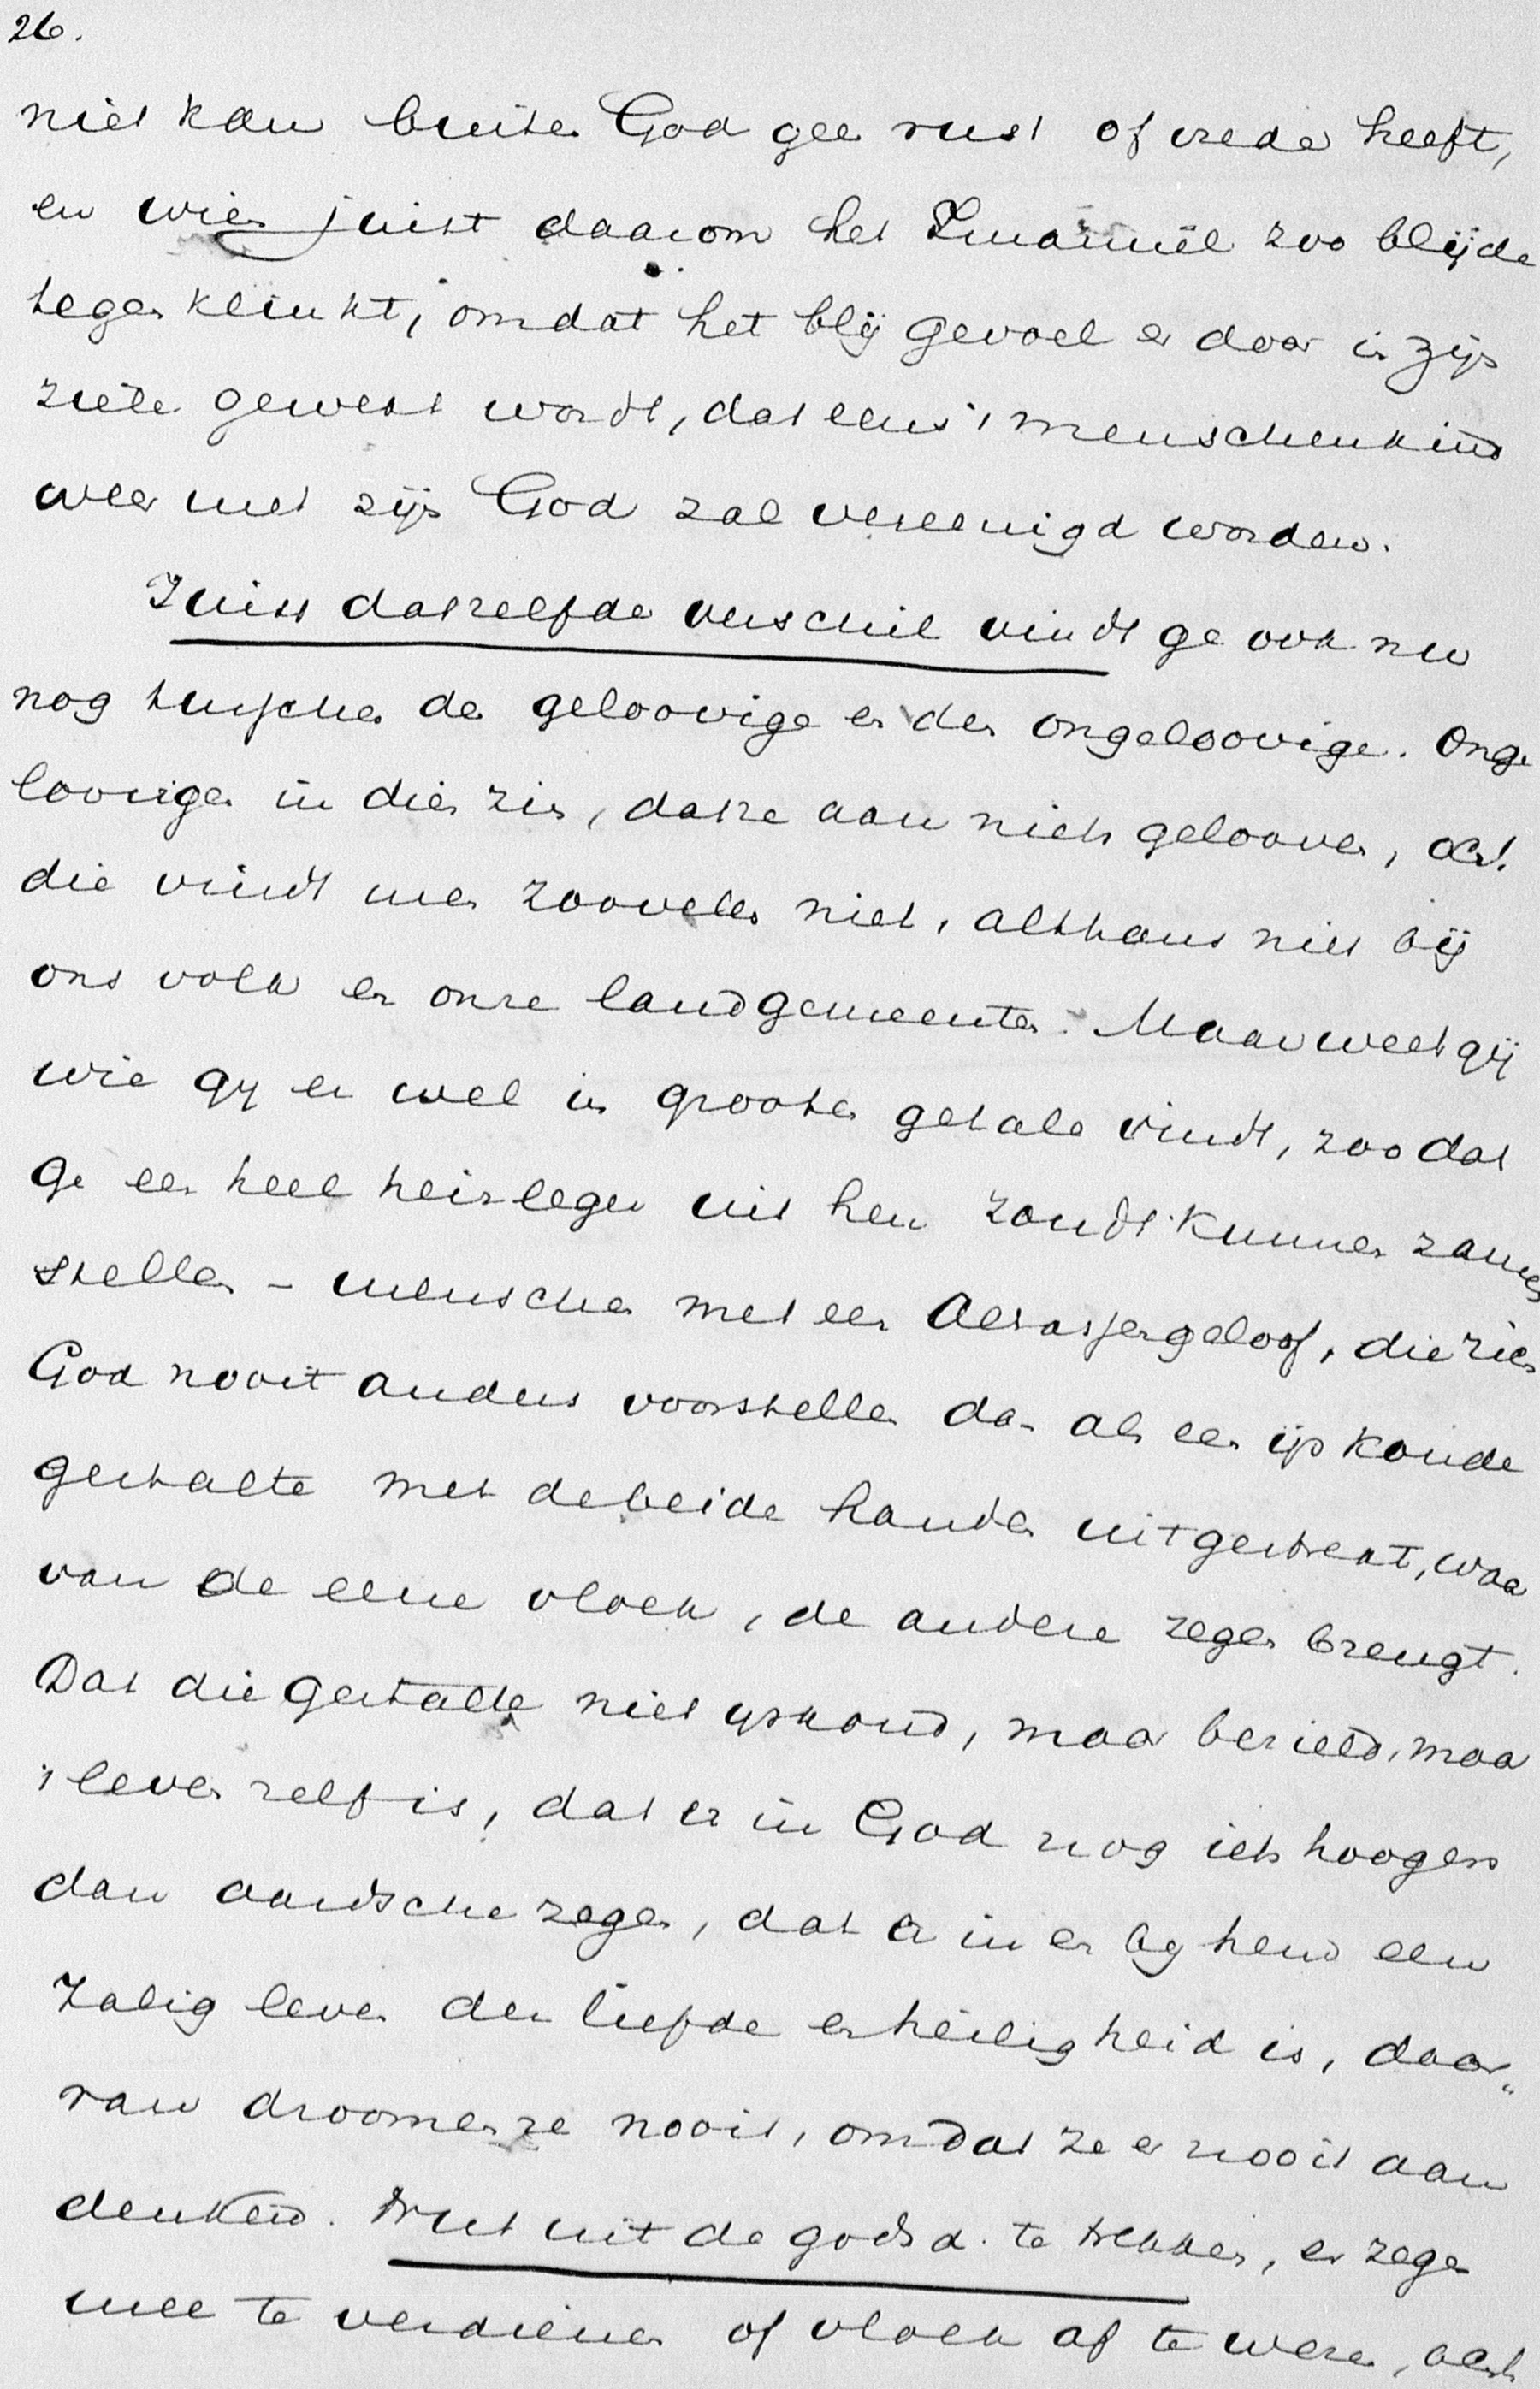 26.
niet kan buiten God geen rust of vrede heeft,
en wien juist daarom het Immanuël zoo blijde
tegen klinkt, omdat het blij gevoel er door in zijn
ziele gewekt wordt, dat eens 't menschenkind
weer met zijn God zal vereenigd worden.
Juist datzelfde verschil vindt ge ook nu
nog tusschen de geloovige en den ongeloovige. Onge
loovigen in dien zin, dat ze aan niets gelooven, och!
die vindt men zoovelen niet, althans niet bij
ons volk en onze landgemeenten. Maar weet gij
wie gij er wel in grooten getale vindt, zoo dat
ge een heel heirleger uit hen zoudt kunnen zamen
stellen - menschen met een Achazjergeloof, die zich
God nooit anders voorstellen dan als een ijskoude
gestalte met de beide handen uitgestrekt, waar
van de eene vloek, de andere zegen brengt.
Dat die gestalte niet ijskoud, maar bezield, maar
't leven zelf is, dat er in God nog iets hoogers
dan aardsche zegen, dat er in en bij hem een
zalig leven der liefde en heiligheid is, daar„
van droomen ze nooit, omdat ze er nooit aan
denken. Nut uit de godsd. te trekken, er zegen
mee te verdienen of vloek af te weren, och